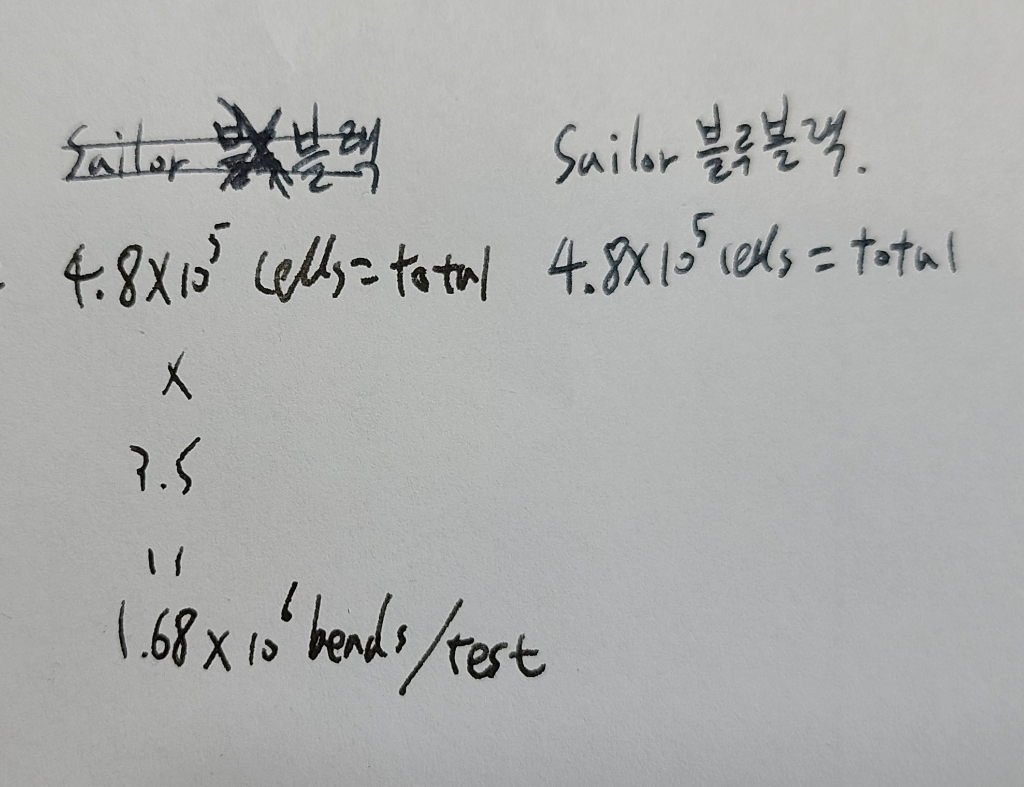 Sailor 블랙
Sailor 블루블랙.
4.8×10⁵ cells = total
4.8×10⁵ cells = total
×
3.5
=
1.68×10⁶ beads/test